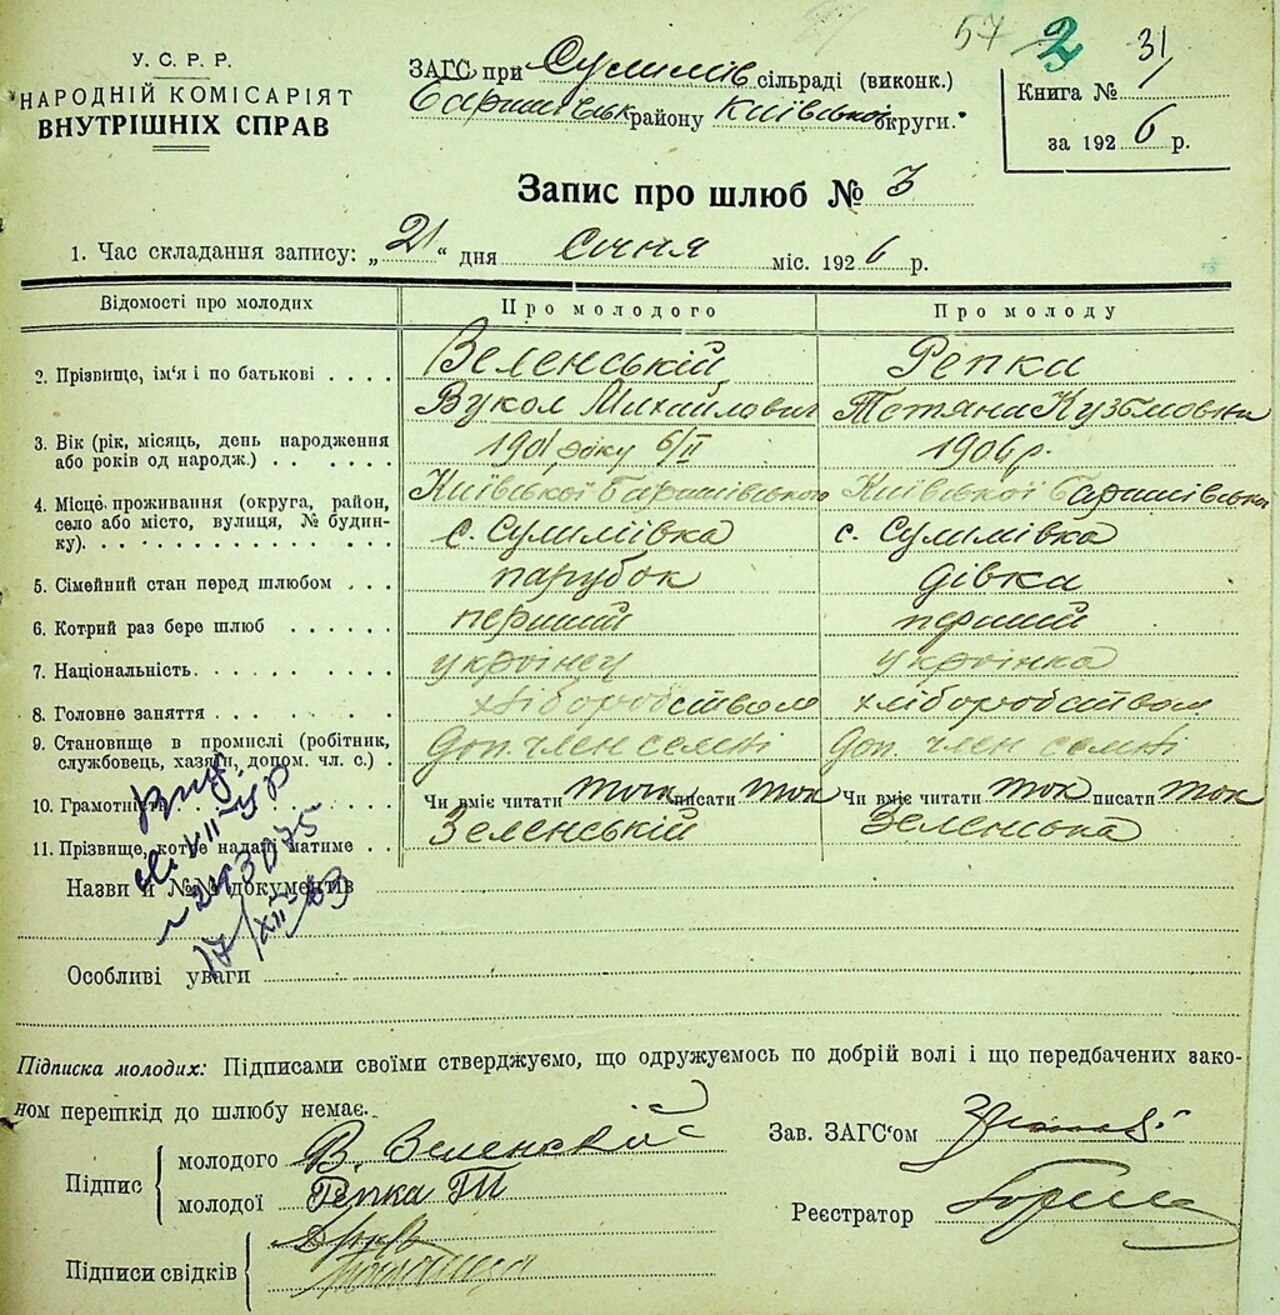 57 2 31
У. С. Р. Р.
НАРОДНІЙ КОМІСАРІЯТ
ВНУТРІШНІХ СПРАВ
ЗАГС при Сулимів сільраді (виконк.)
Баришівськ району Київської округи.
Книга № 1
за 1926 р.
Запис про шлюб № 3
1. Час складання запису: „21“ дня Січня міс. 1926 р.
Відомості про молодих
Про молодого
Про молоду
2. Прізвище, ім‘я і по батькові . . . .
Зеленській
Вукол Михайлович
Репка
Тетяна Кузьмовна
3. Вік (рік, місяць, день народження
або років од народж.) . . . . . .
1901 року 6/II
1906 р.
4. Місце проживання (округа, район,
село або місто, вулиця, № будин-
ку). . . . . . . . . . . . . . . .
Київської Баришівського
с. Сулимівка
Київської Баришівського
с. Сулимівка
5. Сімейний стан перед шлюбом . . .
парубок
дівка
6. Котрий раз бере шлюб . . . . . .
перший
перший
7. Національність. . . . . . . . . .
українец
українка
8. Головне заняття . . . . . . . .
хліборобством
хліборобством
9. Становище в промислі (робітник,
службовець, хазяїн, допом. чл. с.) .
Доп. член семьі
Доп. член семьі
10. Грамотність . . . . . . . . . .
Чи вміє читати так писати так
Чи вміє читати так писати так
11. Прізвище, котре надалі матиме . .
Зеленській
Зеленська
Назви й №№ документів
17/XII 63
Особливі уваги
Підписка молодих: Підписами своїми стверджуємо, що одружуємось по добрій волі і що передбачених зако-
ном перешкід до шлюбу немає.
Підпис
молодого В. Зеленскій
молодої Репка Т
Підписи свідків
Зав. ЗАГС‘ом
Реєстратор